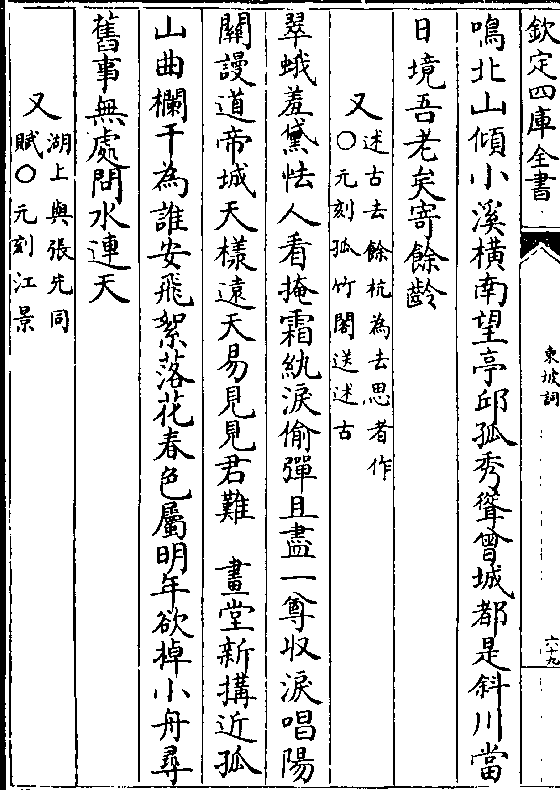 欽定四庫全書
東坡詞
六十九
鳴北山傾小溪橫南望亭邱孤秀聳曾城都是斜川當
日境吾老矣寄餘齡
又
述古去餘杭為去思者作
○元刻孤竹閣送述古
翠蛾羞黛怯人看掩霜紈淚偷彈且盡一尊收淚唱陽
關謾道帝城天樣遠天易見見君難 畫堂新搆近孤
山曲欄干為誰安飛絮落花春色屬明年欲棹小舟尋
舊事無處問水連天
又
湖上與張先同
賦○元刻江景